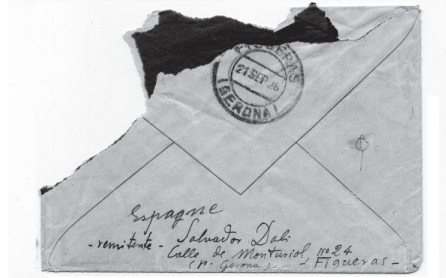 FIGUERAS
21 SEP 26
(GERONA)
Espagne
- remitente - Salvador Dali
Calle de Monturiol nº 24
(pr. Gerona) - Figueras -